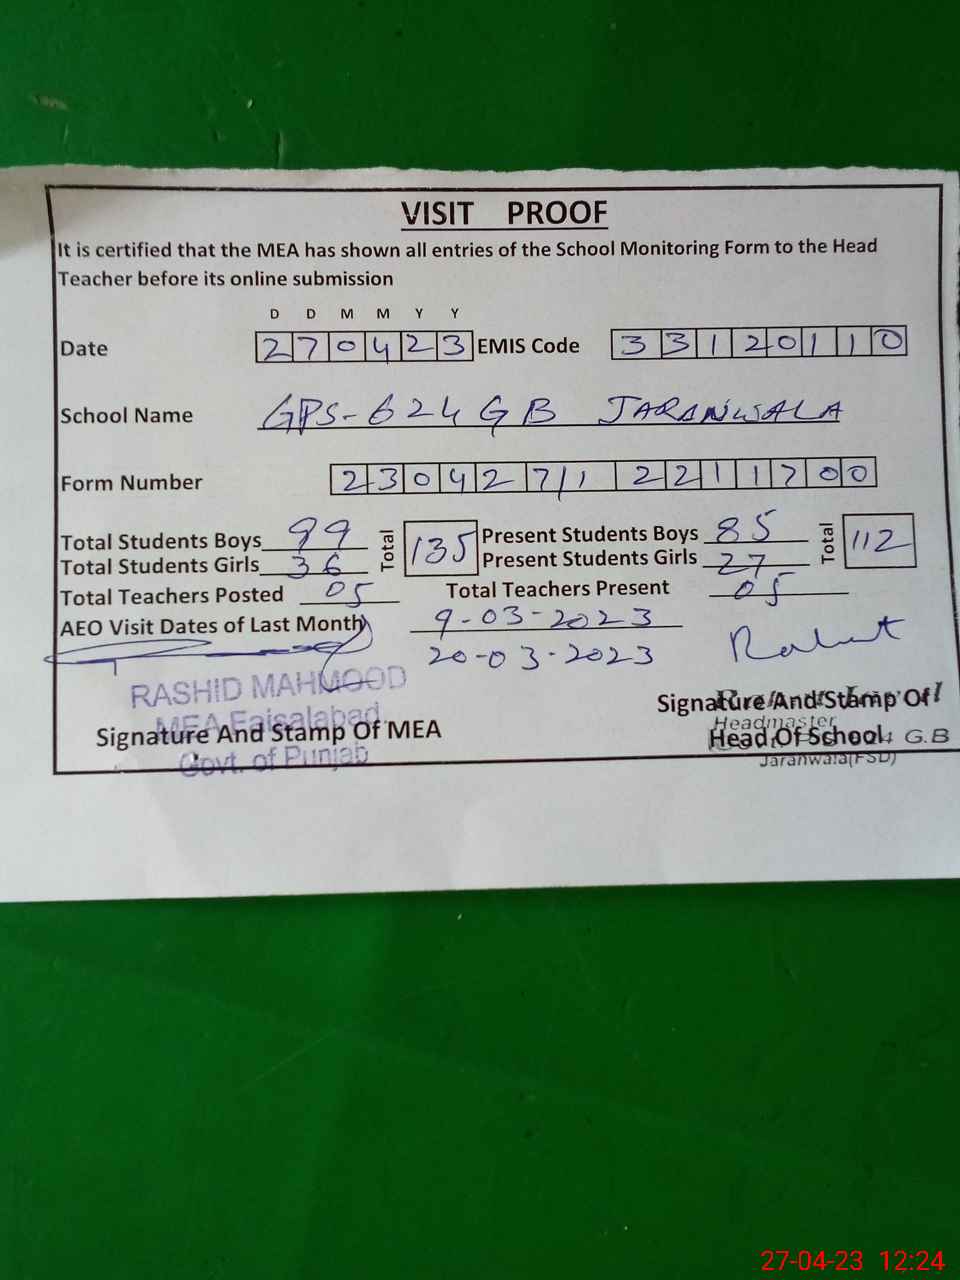 VISIT PROOF
It is certified that the MEA has shown all entries of the School Monitoring Form to the Head
Teacher before its online submission
D D M M Y Y
Date 270423 EMIS Code 33120110
School Name GPS-624 GB JARANWALA
Form Number 230427/1 2211700
Total Students Boys 99 Total 135 Present Students Boys 85 Total 112
Total Students Girls 36 Present Students Girls 27
Total Teachers Posted 05 Total Teachers Present 05
AEO Visit Dates of Last Month 9-03-2023
20-03-2023
RASHID MAHMOOD
MEA Faisalabad
Govt. of Punjab
Signature And Stamp Of MEA
Signature And Stamp Of
Head Of School
Headmaster
G.B
Jaranwala(FSD)
27-04-23 12:24